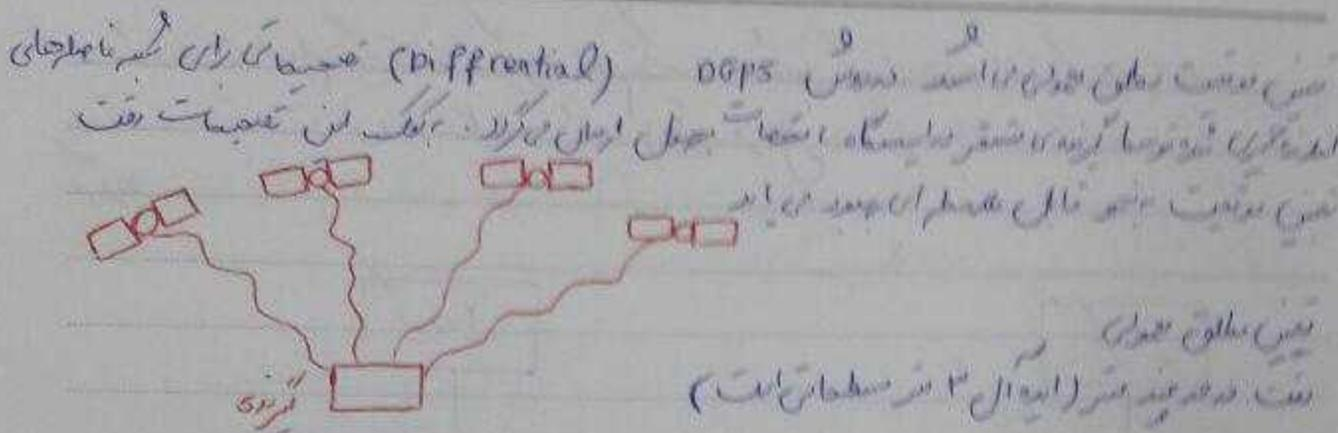 تعیین موقعیت مطلق همراه می‌باشد. روش DGPS (Diffrential) تصحیحاتی برای شبه فاصله‌های
اندازه‌گیری شده توسط گیرنده مستقر در ایستگاه ارسال می‌گردد. به کمک این تصحیحات دقت
تعیین موقعیت به نحو قابل ملاحظه‌ای بهبود می‌یابد
تعیین مطلق
دقت در حد چند متر (ایده آل ۳ متر مسطحاتی است)
گیرنده